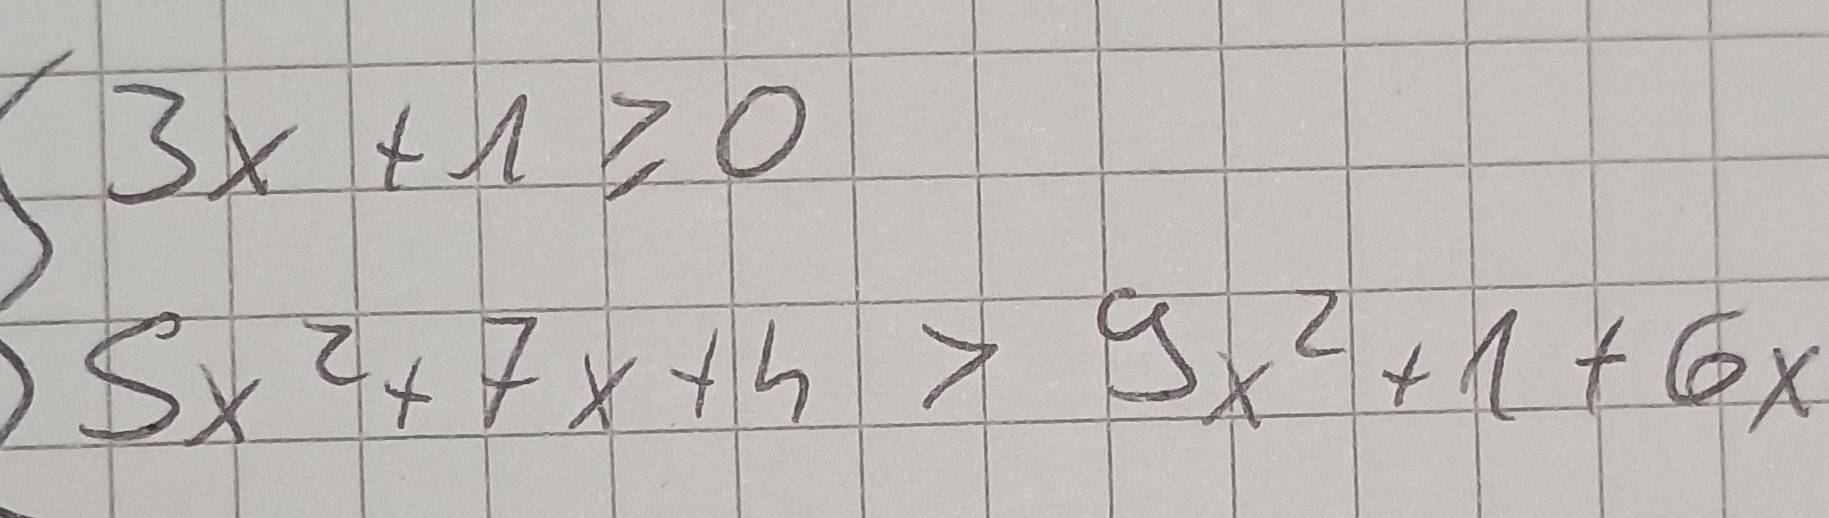 3x + 1 ≥ 0
5x² + 7x + 4 > 9x² + 1 + 6x